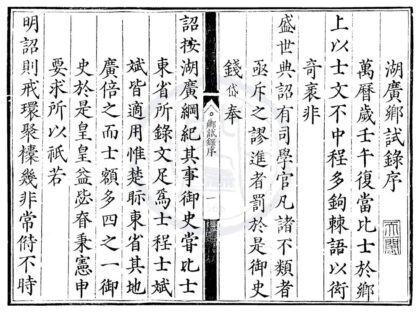 湖廣鄉試錄序
萬曆歲壬午復當比士於鄉
上以士文不中程多鉤棘語以衒
奇衺非
盛世典詔有司學官凡諸不類者
亟斥之謬進者罰於是御史
錢岱奉
鄉試錄序
一
詔按湖廣綱紀其事御史嘗比士
東省所錄文足爲士程士斌
斌皆適用惟楚眎東省其地
廣倍之而士額多四之一御
史於是皇皇益毖眘秉憲申
要求所以祇若
明詔則戒環聚㯓幾非常偫不時